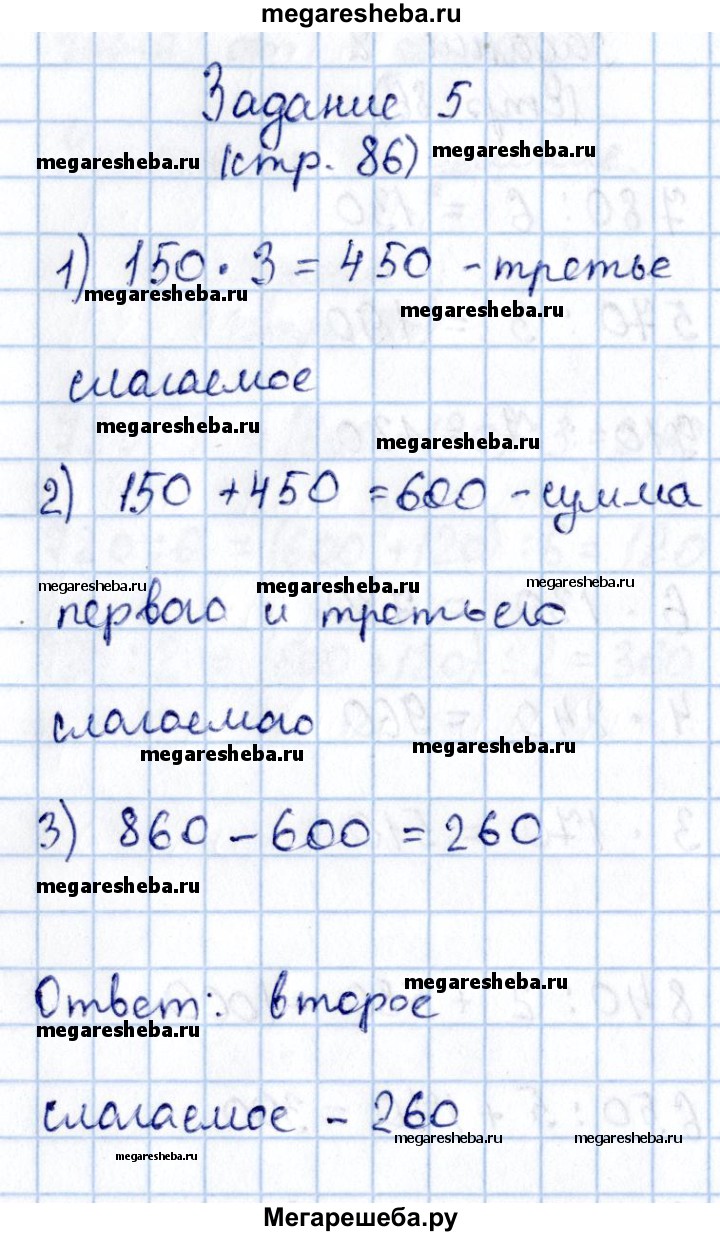 megaresheba.ru
Задание 5
megaresheba.ru (стр. 86) megaresheba.ru
1) 150 · 3 = 450 - третье
megaresheba.ru
megaresheba.ru
слагаемое
megaresheba.ru
megaresheba.ru
2) 150 + 450 = 600 - сумма
megaresheba.ru megaresheba.ru megaresheba.ru
первого и третьего
слагаемого
megaresheba.ru megaresheba.ru
3) 860 - 600 = 260
megaresheba.ru
megaresheba.ru
Ответ: второе
megaresheba.ru
слагаемое - 260
megaresheba.ru megaresheba.ru
megaresheba.ru
Мегарешеба.ру